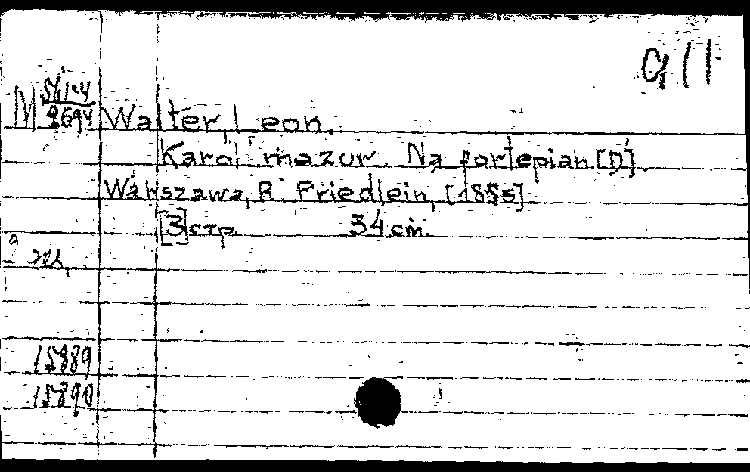 G 11
M 2694
Walter, Leon.
Karol mazur. Na fortepian [D].
Warszawa, R. Friedlein, [1885].
[3] стр. 34 cm.
15889
15890